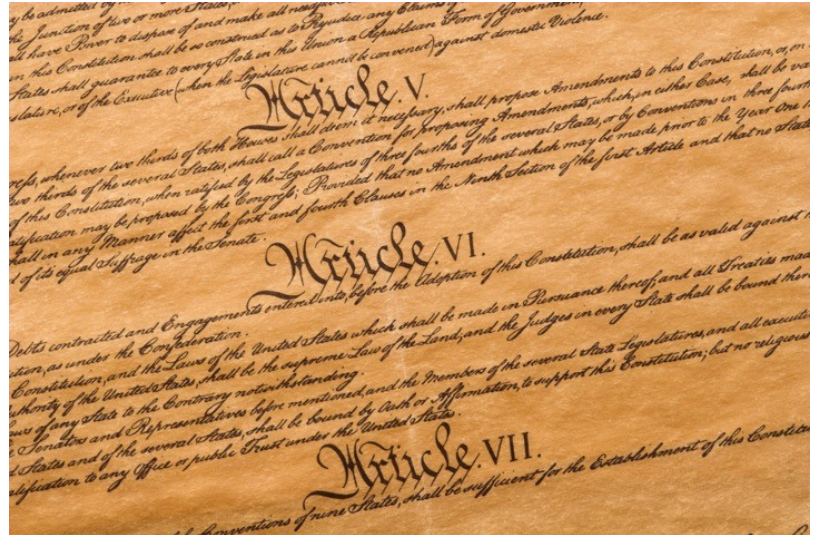 y be admitted by the
the Junction of two or more States,
all have Power to dispose of and make all needful
in this Constitution shall be so construed as to Prejudice any Claims of
States shall guarantee to every State in this Union a Republican Form of Government,
slature, or of the Executive (when the Legislature cannot be convened) against domestic Violence.
Article. V.
ress, whenever two thirds of both Houses shall deem it necessary, shall propose Amendments to this Constitution, or, on
two thirds of the several States, shall call a Convention for proposing Amendments, which, in either Case, shall be va
of this Constitution, when ratified by the Legislatures of three fourths of the several States, or by Conventions in three fourth
atification may be proposed by the Congress; Provided that no Amendment which may be made prior to the Year One
hall in any Manner affect the first and fourth Clauses in the Ninth Section of the first Article and that no State
of its equal Suffrage in the Senate.
Article. VI.
Debts contracted and Engagements entered into, before the Adoption of this Constitution, shall be as valid against
tion, as under the Confederation.
Constitution, and the Laws of the United States which shall be made in Pursuance thereof; and all Treaties mad
uthority of the United States, shall be the supreme Law of the Land; and the Judges in every State shall be bound there
aws of any State to the Contrary notwithstanding.
Senators and Representatives before mentioned, and the Members of the several State Legislatures, and all executi
d States and of the several States, shall be bound by Oath or Affirmation, to support this Constitution; but no religious
alification to any Office or public Trust under the United States.
Article. VII.
Conventions of nine States, shall be sufficient for the Establishment of this Constitu